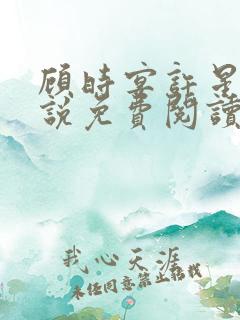 顾时宴許星
說免費閱讀
我心天涯
未经同意禁止转载